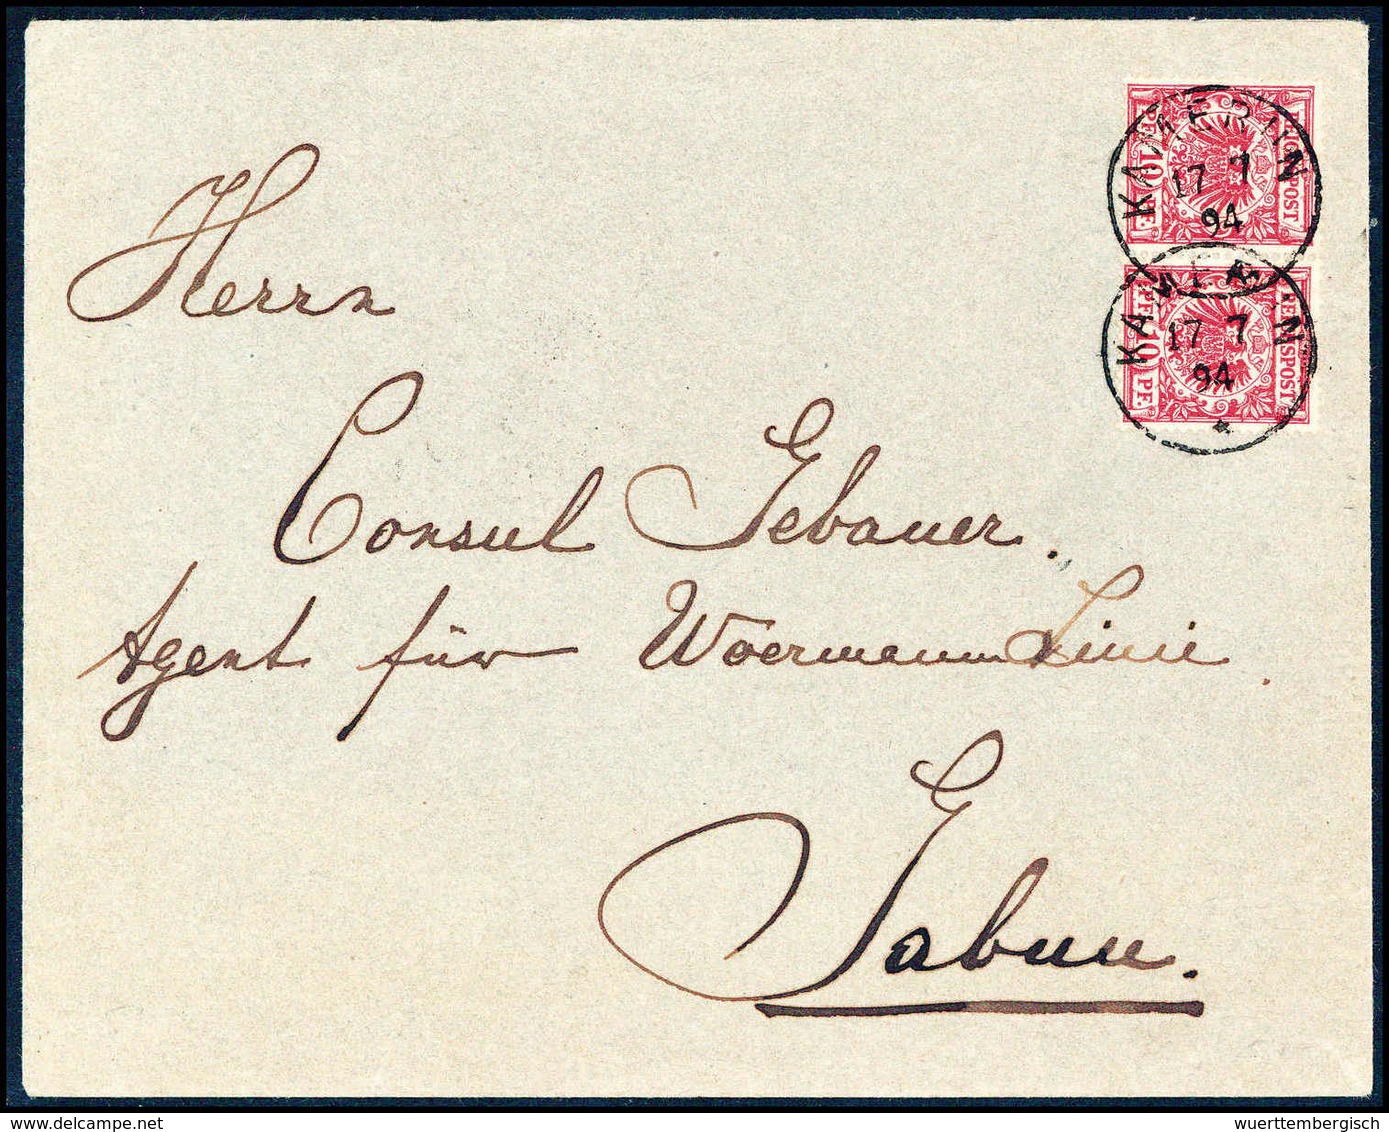 Herrn
Consul Gebauer.
Agent für Woermann Linie.
Gabun.
KAMERUN
17 7
94
REICHSPOST
PF. 10 PF.
KAMERUN
17 7
94
*
REICHSPOST
PF. 10 PF.
delcampe.net
wuerttembergisch